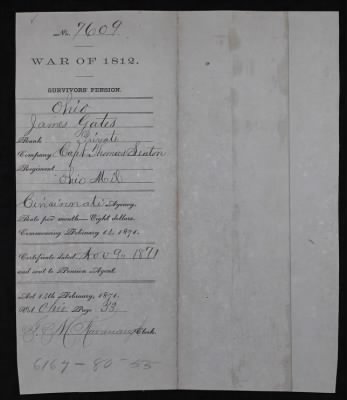 No. 7609
WAR OF 1812.
SURVIVORS' PENSION.
Ohio
James Gates
Rank Private
Company Capt Thomas Seaton
Regiment
Ohio Md
Cincinnati Agency.
Rate per month—Eight dollars.
Commencing February 14, 1871.
Certificate dated Nov 9 1871
and sent to Pension Agent.
Act 14th February, 1871.
Vol Ohio Page 33
Clerk.
6167-80-55